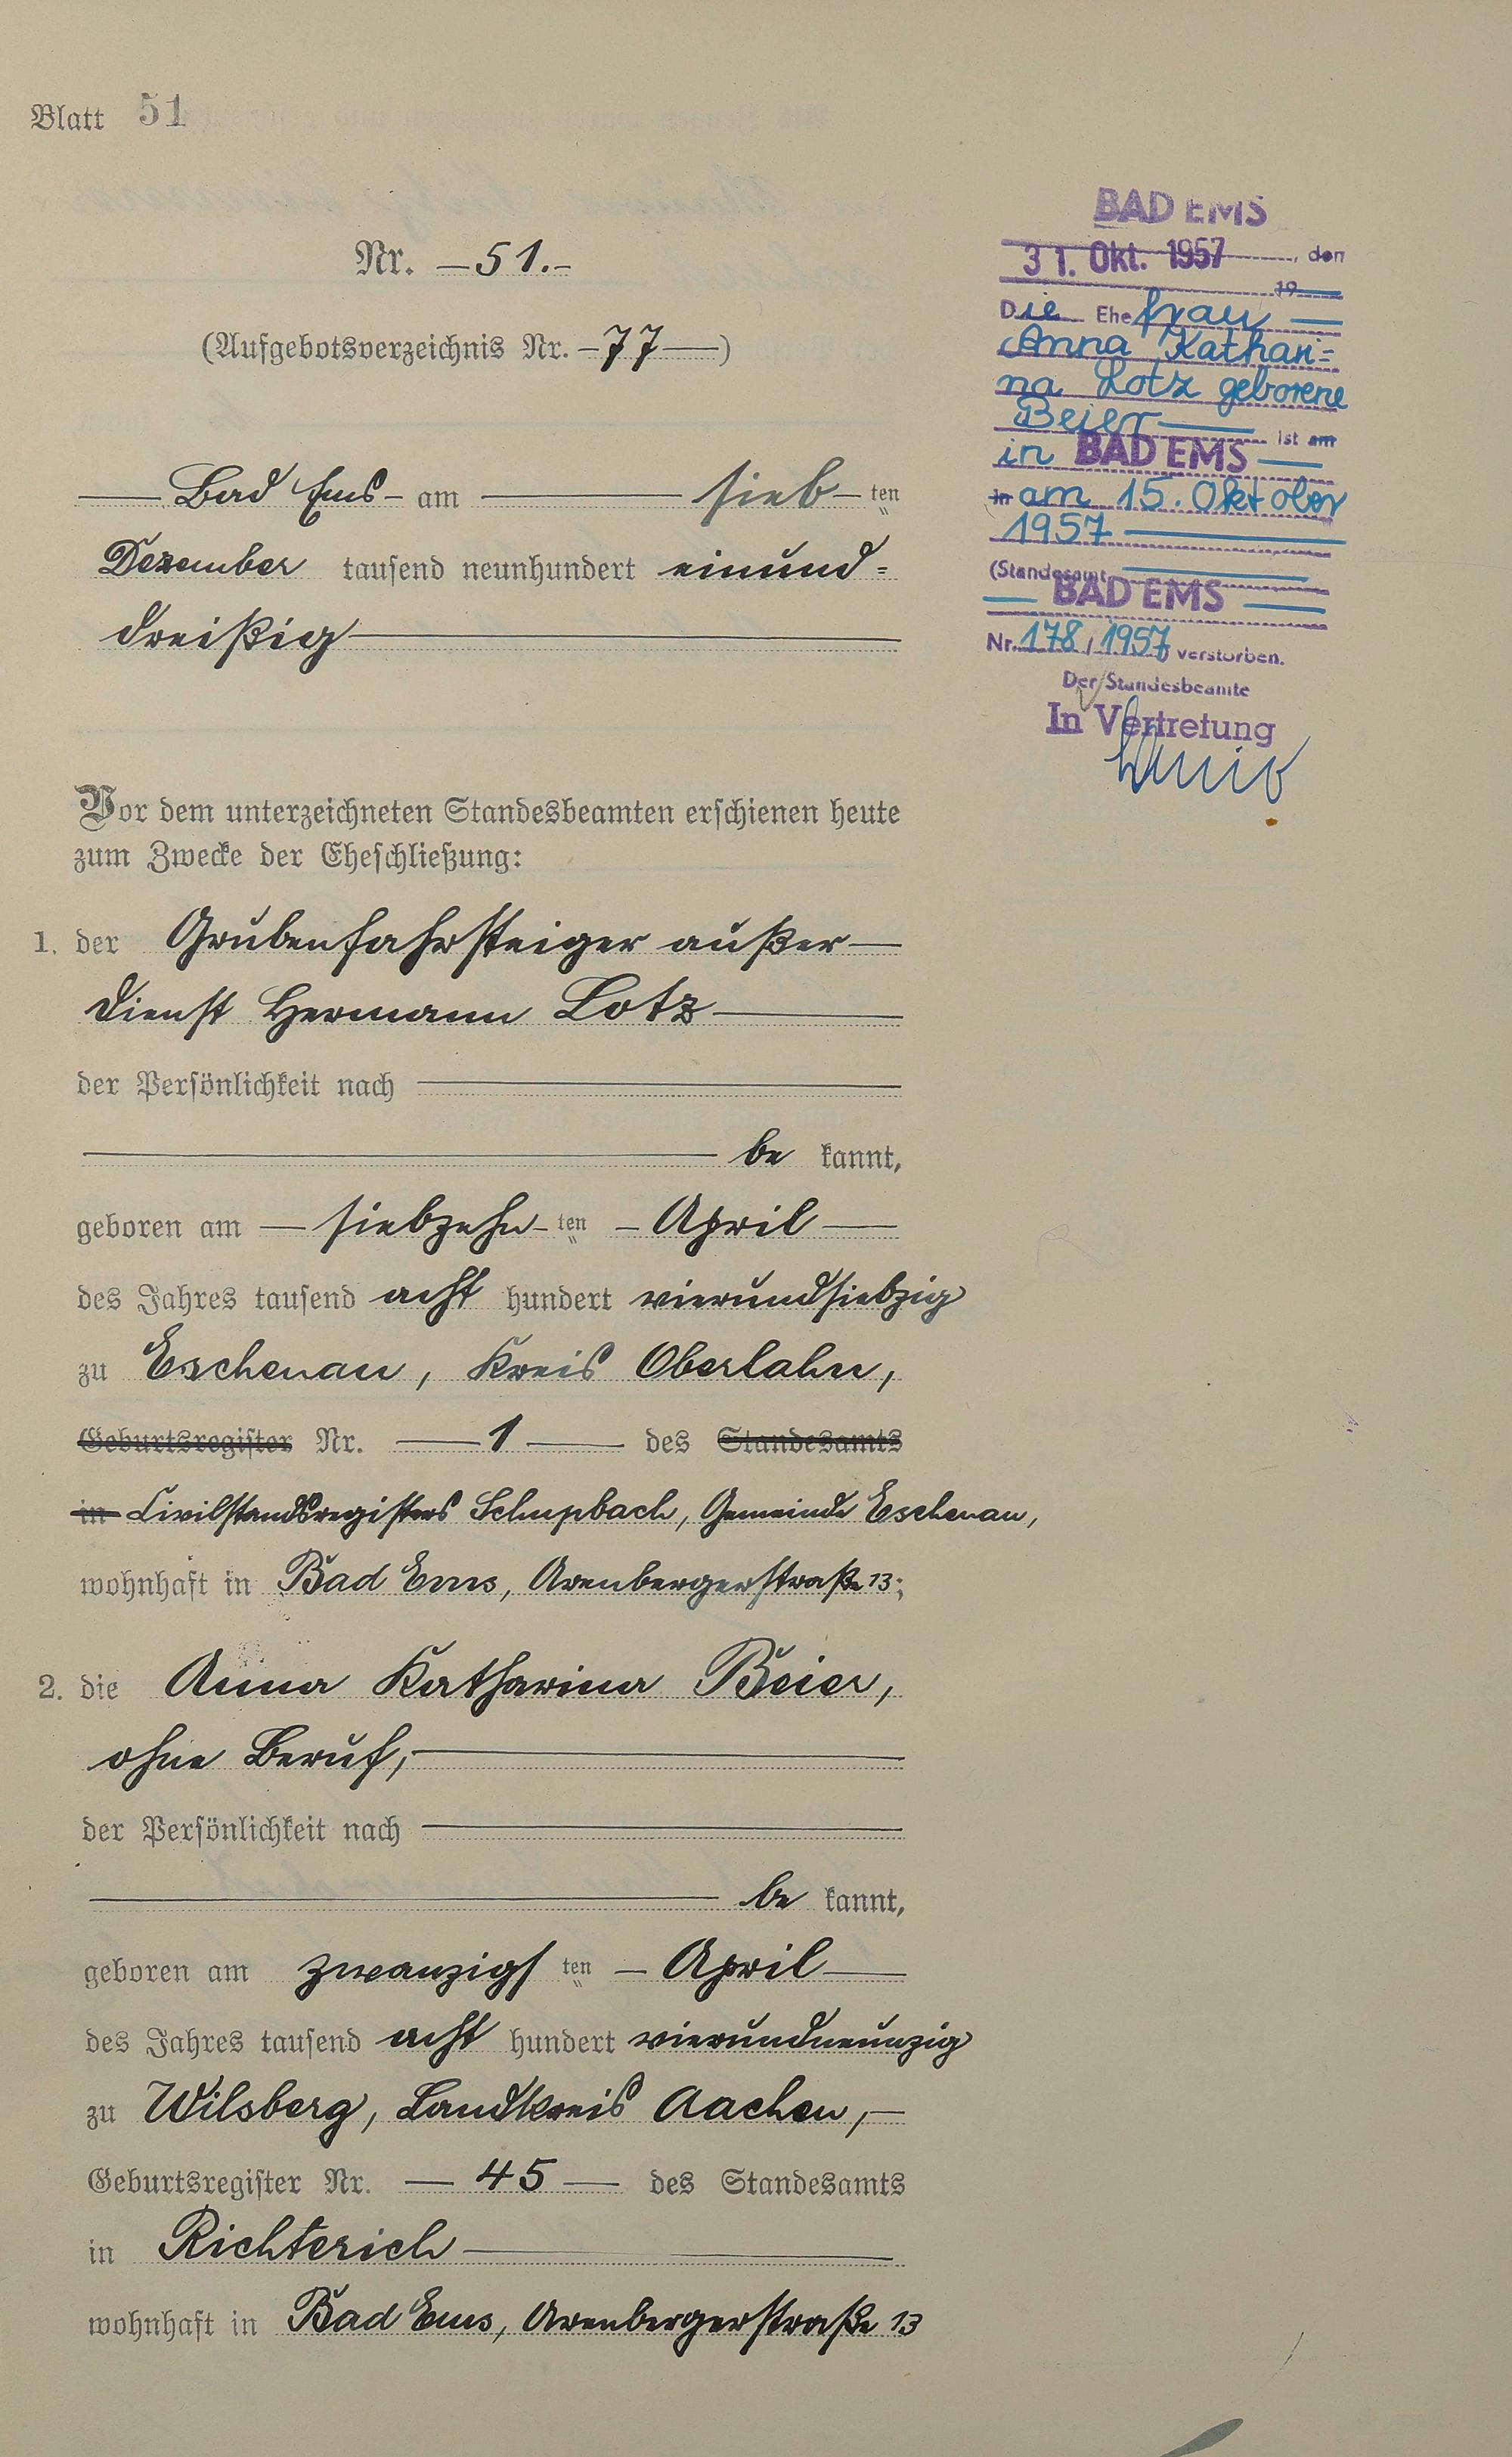 Blatt 51
Nr. 51.
(Aufgebotsverzeichnis Nr. 77)
Bad Ems am sieb ten
Dezember tausend neunhundert einund=
dreißig
Vor dem unterzeichneten Standesbeamten erschienen heute
zum Zwecke der Eheschließung:
1. der Grubenfahrsteiger außer
Dienst Hermann Lotz
der Persönlichkeit nach
be kannt,
geboren am siebzehn ten April
des Jahres tausend acht hundert vierundsiebzig
zu Eschenau, Kreis Oberlahn,
Geburtsregister Nr. 1 des Standesamts
in Civilstandsregisters Schupbach, Gemeinde Eschenau,
wohnhaft in Bad Ems, Arenbergerstraße 13;
2. die Anna Katharina Beier,
ohne Beruf,
der Persönlichkeit nach
be kannt,
geboren am zwanzigs ten April
des Jahres tausend acht hundert vierundneunzig
zu Wilsberg, Landkreis Aachen,
Geburtsregister Nr. 45 des Standesamts
in Richterich
wohnhaft in Bad Ems, Arenbergerstraße 13
BAD EMS
31. Okt. 1957, den
19
Die Ehefrau
Anna Kathari=
na Lotz geborene
Beier ist am
in BAD EMS
in am 15. Oktober
1957
(Standesamt
BAD EMS
Nr. 178/1957 verstorben.
Der Standesbeamte
In Vertretung